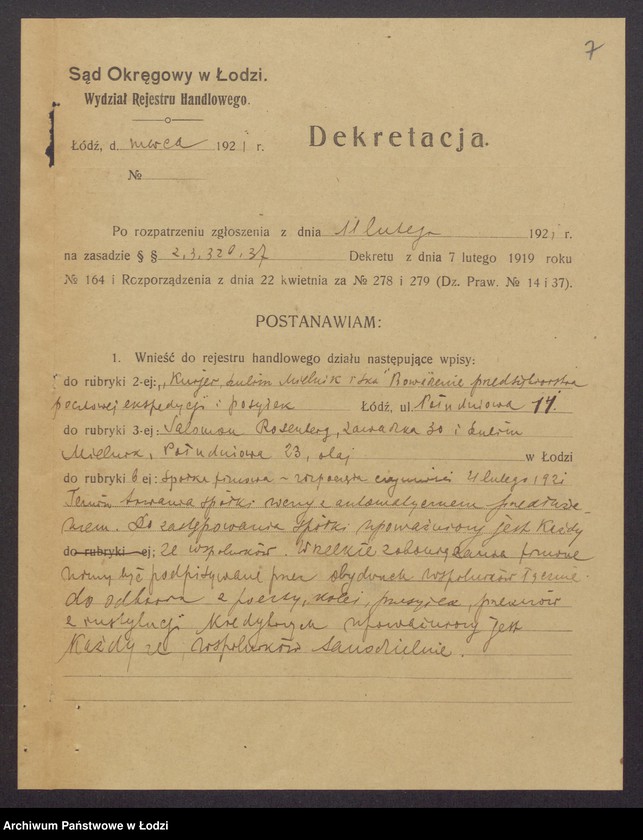 7
Sąd Okręgowy w Łodzi.
Wydział Rejestru Handlowego.
Łódź, d. marca 1921 r.
№
Dekretacja.
Po rozpatrzeniu zgłoszenia z dnia 11 lutego 1921 r.
na zasadzie § § 2, 3, 320, 37 Dekretu z dnia 7 lutego 1919 roku
№ 164 i Rozporządzenia z dnia 22 kwietnia za № 278 i 279 (Dz. Praw. № 14 i 37).
POSTANAWIAM:
1. Wnieść do rejestru handlowego działu następujące wpisy:
do rubryki 2-ej: „Kurjer, Mielnik i Ska" Prowadzenie przedsiębiorstwa
pocztowej ekspedycji i posyłek Łódź, ul Południowa 11.
do rubryki 3-ej: Salomon Rozenberg, Zawadzka 30 i
Mielnik, Południowa 23, w Łodzi
do rubryki 6 ej: spółka firmowa – rozpoczęła czynności 4 lutego 1921
Termin trwania spółki roczny z automatycznem przedłuże-
niem. Do zastępowania spółki upoważniony jest każdy
do rubryki ej: ze wspólników. Wszelkie zobowiązania firmowe
winny być podpisywane przez obydwuch wspólników łącznie.
do odbioru z poczty, kolei, przesyłek, 
z instytucji kredytowych upoważniony jest
każdy ze wspólników samodzielnie.
Archiwum Państwowe w Łodzi